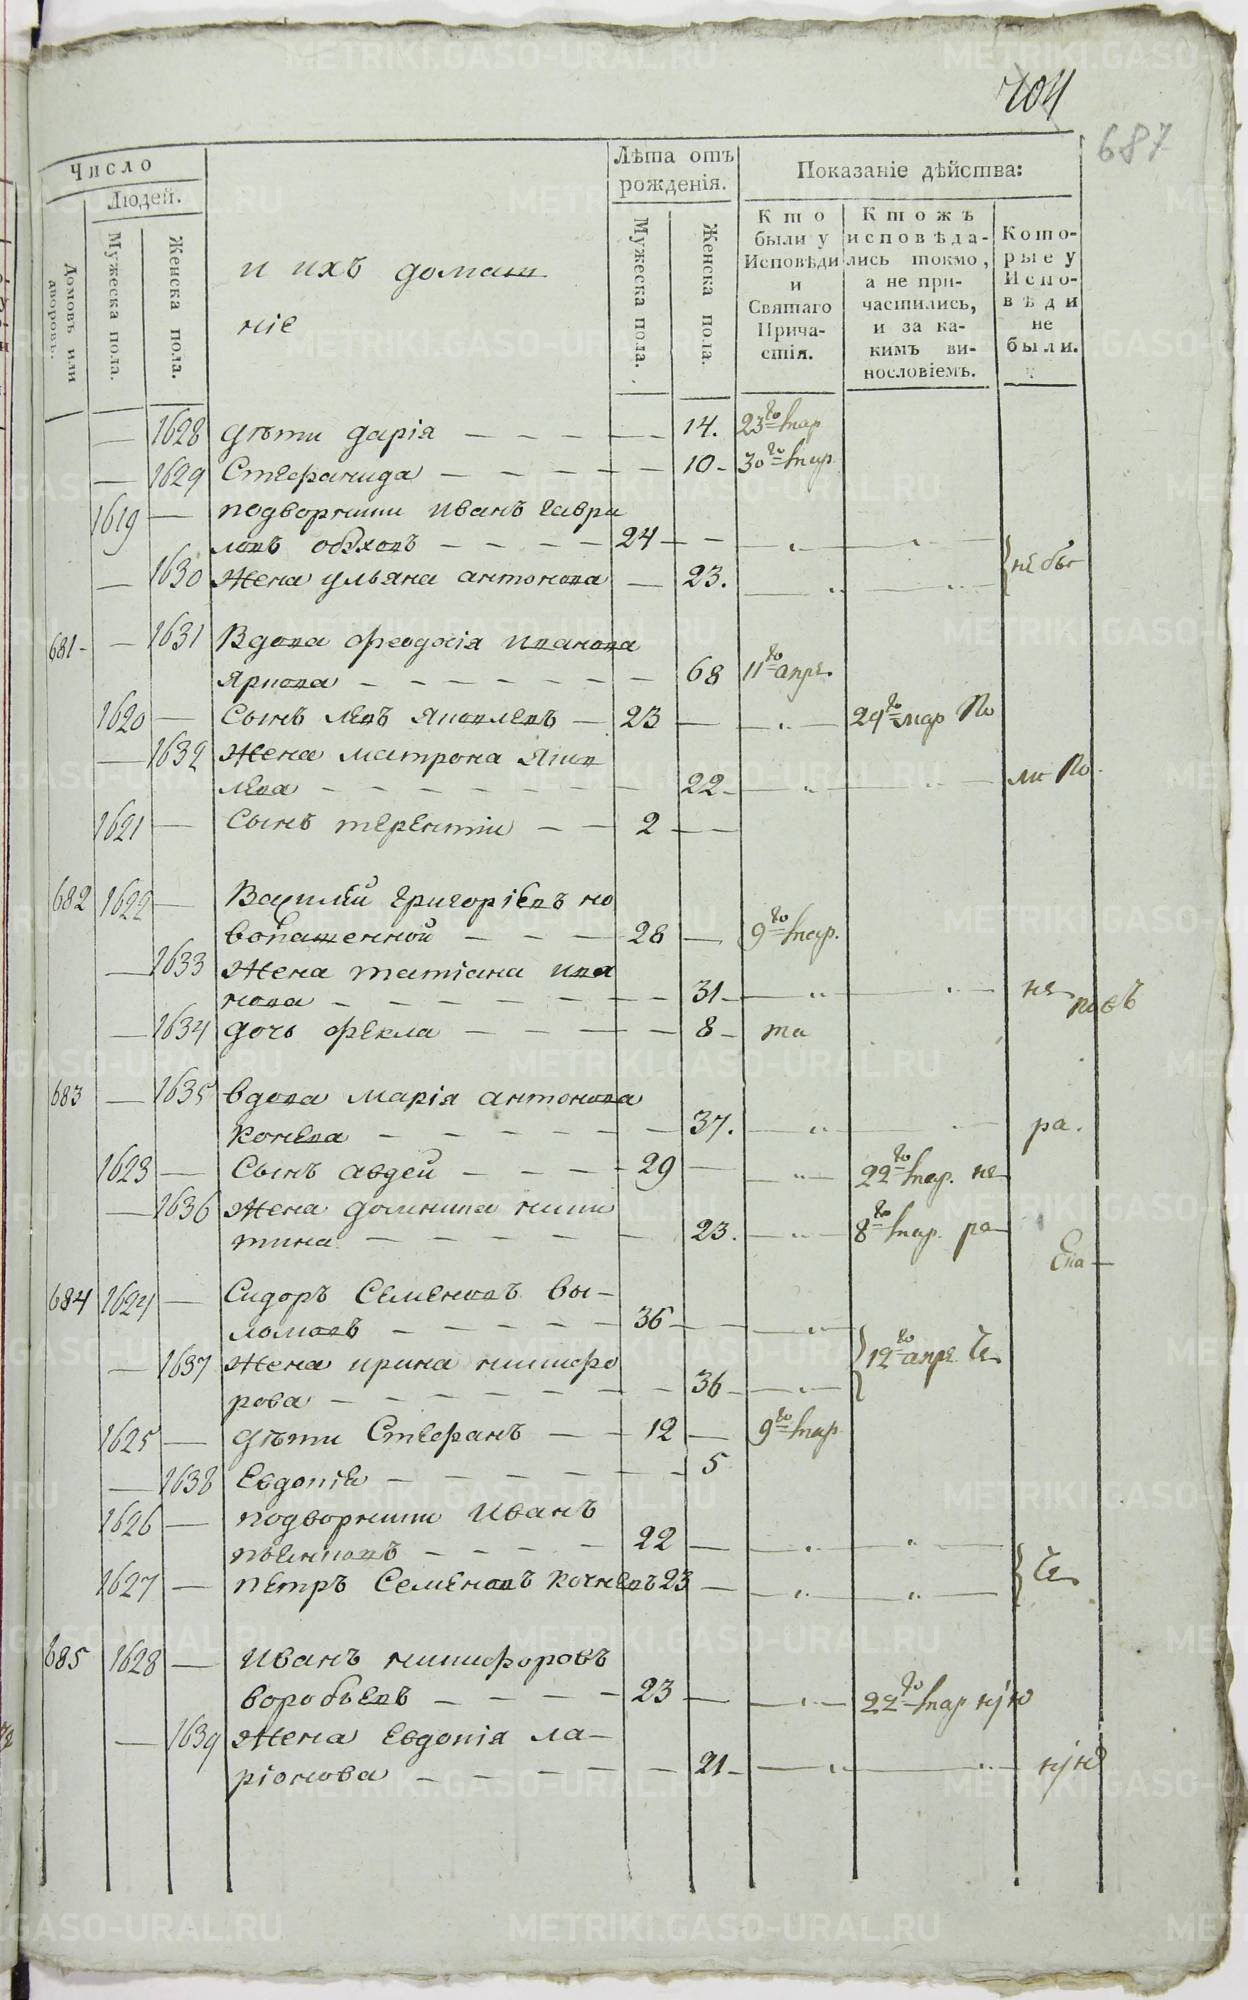 404
687
Число
Людей.
Домовъ или дворовъ.
Мужеска пола.
Женска пола.
и ихъ домаш
ніе
Лѣта отъ рожденія.
Мужеска пола.
Женска пола.
Показаніе дѣйства:
Кто были у Исповѣди и Святаго Прича-стія.
Ктожъ исповѣда-лись токмо, а не при-частились, и за ка-кимъ ви-нословіемъ.
Кото-рые у Испо-вѣди не были.
— 1628 дѣти дарія — 14. 23го мар
— 1629 Стефанида — 10 - 30го мар
1619 — подворники иванъ гаври
ловъ обуховъ — 24 —
не бы
— 1630 Жена ульяна антонова — 23.
681 - — 1631 Вдова феодосія иванова
ярцова — 68 11го апре.
1620 — Сынъ левъ яковлевъ — 23 — 29го мар по
— 1632 Жена матрона яков
лева — 22 —
1621 — Сынъ терентіи — 2 —
682 1622 — Василей григоріевъ но
вопашенной — 28 — 9го мар.
— 1633 Жена татіана ива
нова — 31 — не
— 1634 дочь фекла — 8 - та
683 — 1635 вдова марія антонова
конева — 37. ра.
1623 — Сынъ авдей — 29 — 22го мар. не
— 1636 Жена домника ники
тина — 23. 8го мар. ра
684 1624 — Сидоръ Семеновъ вы-
ломовъ — 36 —
12го апре
— 1637 Жена ирина никифо
рова — 36 —
1625 — дѣти Стефанъ — 12 — 9го мар
— 1638 Евдокія — 5
1626 — подворники иванъ
22 —
1627 — петръ Семеновъ кочневъ 23 —
685 1628 — иванъ никифоровъ
воробьевъ — 23 — 22го мар
— 1639 Жена Евдокія ла-
ріонова — 21 —
METRIKI.GASO-URAL.RU